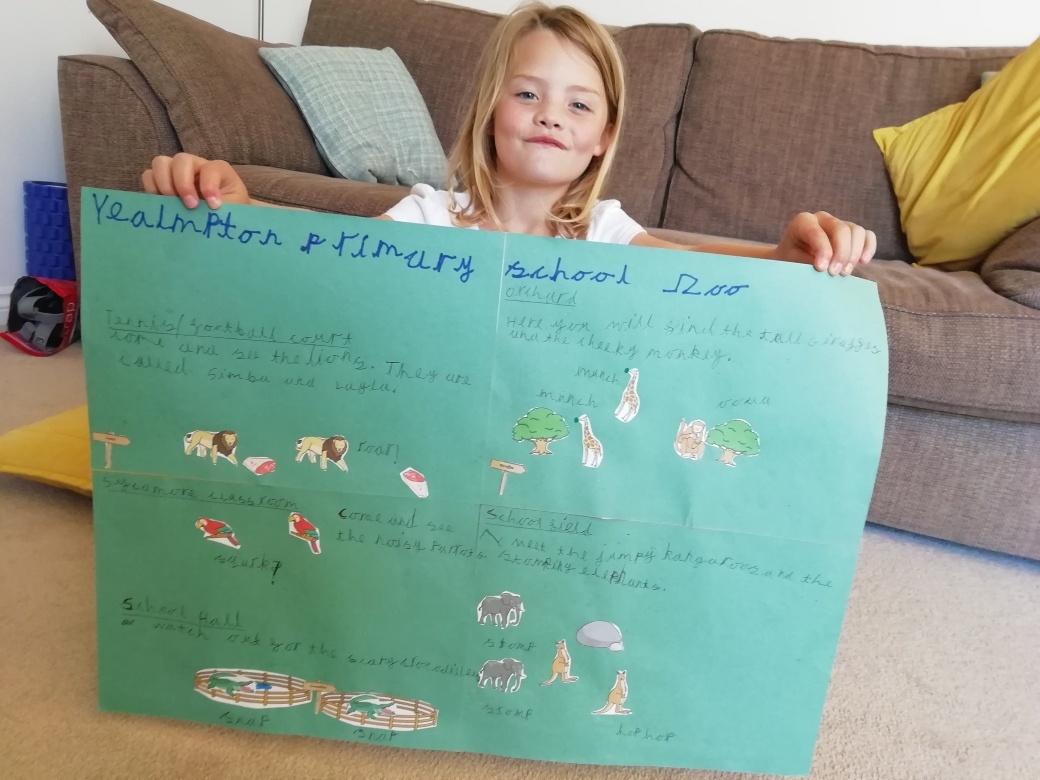 Yealmpton primary school Zoo
Tennis/football court
come and see the lions. They are
called Simba and Layla.
roar!
orchard
Here you will find the tall giraffes
and the cheeky monkey.
munch
munch
oowa
Sycamore classroom
Come and see
the noisy Parrots
squrk?
School Hall
watch out for the scary crocodiles
snap
snap
School field
Meet the jumpy kangaroos and the
stomping elephants.
stomp
stomp
hop hop